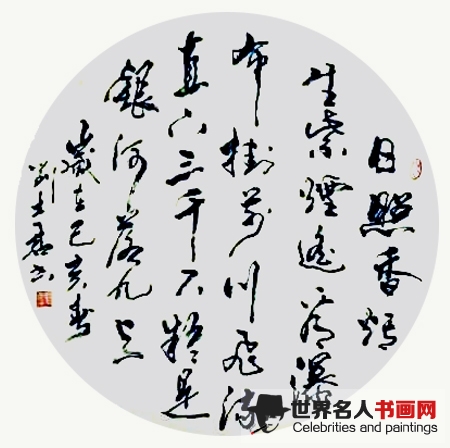 日照香炉
生紫煙遙看瀑
布掛前川飛流
直下三千尺疑是
銀河落九天
歲在己亥春
世界名人书画网
Celebrities and paintings